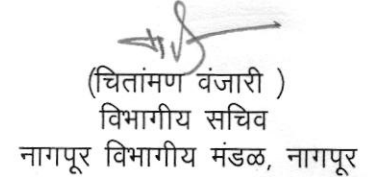 (चितांमण वंजारी )
विभागीय सचिव
नागपूर विभागीय मंडळ, नागपूर